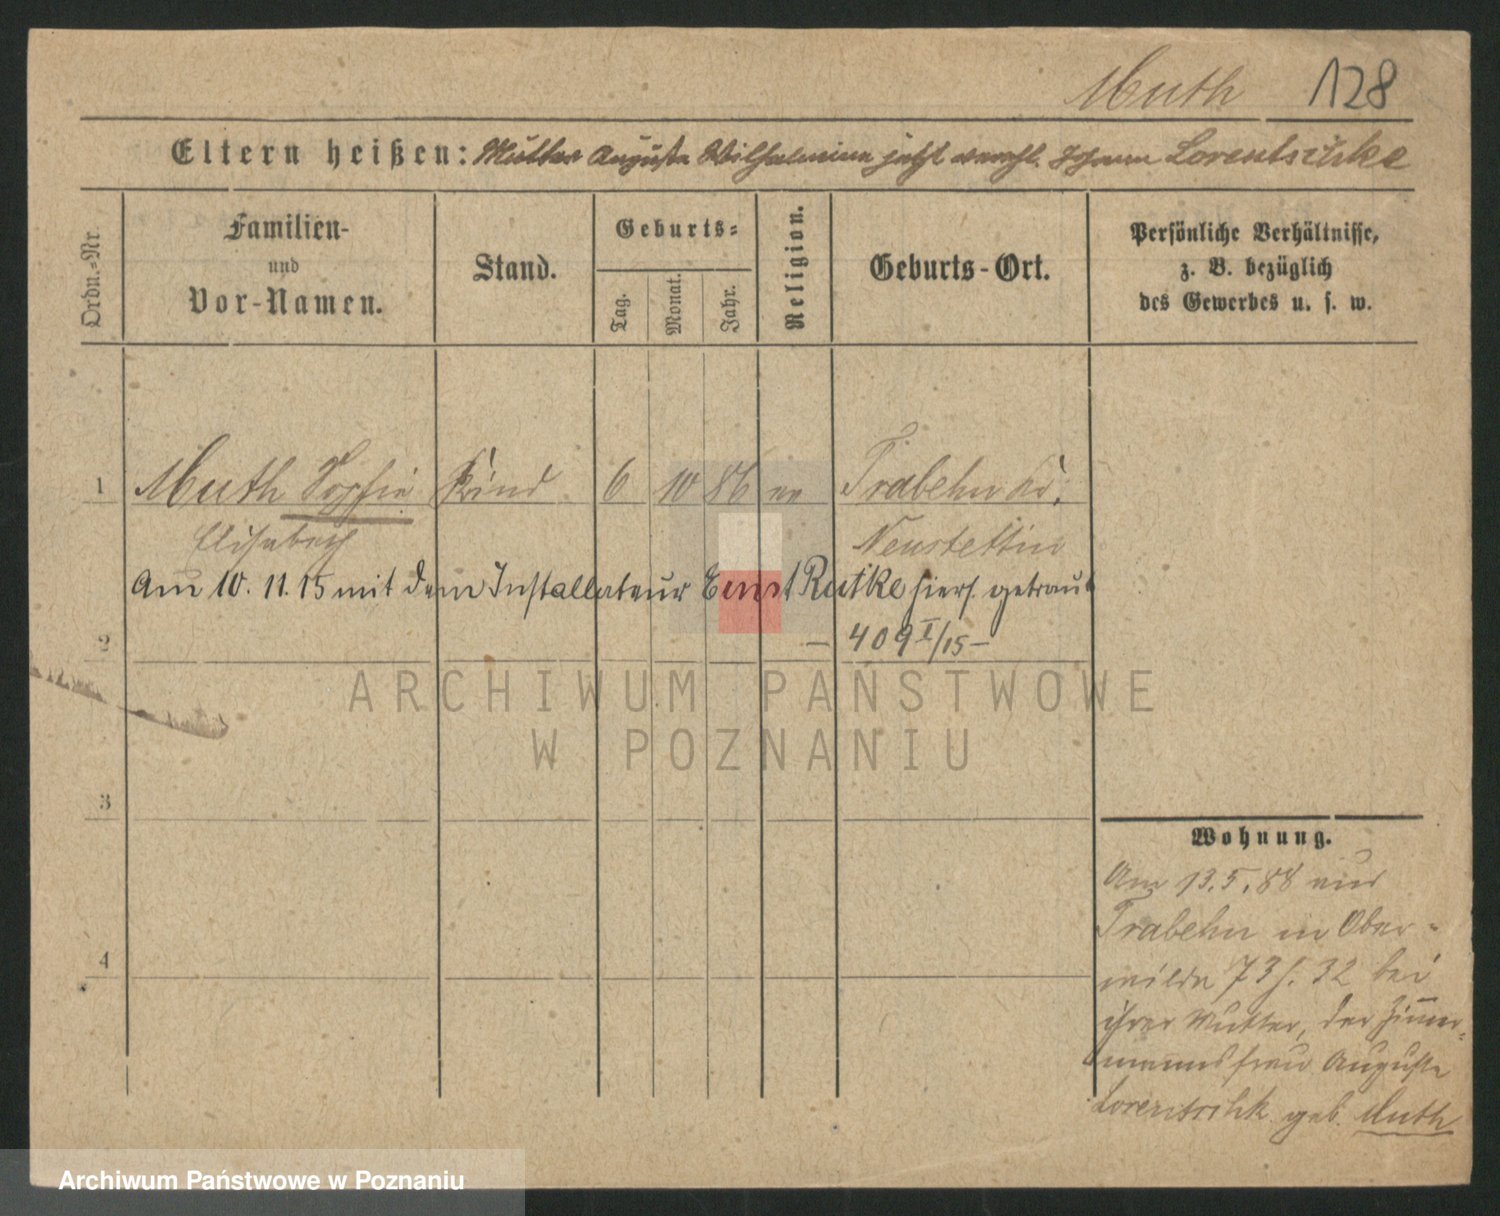 Muth 128
Eltern heißen: Mutter Auguste Wilhelmine jetzt verehl. Johann Lorentschke
Ordn.-Nr.
Familien-
und
Vor-Namen.
Stand.
Geburts-
Tag.
Monat.
Jahr.
Religion.
Geburts-Ort.
Persönliche Verhältnisse,
z. B. bezüglich
des Gewerbes u. s. w.
1 Muth Sophie Kind 6 10 86 ev Trabehn Kr.
Elisabeth Neustettin
Am 10. 11. 15 mit dem Installateur Ernst Rutke hiers. getraut
2 — 409 I/15 —
ARCHIWUM PAŃSTWOWE
W POZNANIU
3
Wohnung.
Am 13.5.88 aus
Trabehn in Ober-
wilda 73 f. 32 bei
ihrer Mutter, der Zimmer-
mannsfrau Auguste
Lorentschk geb. Muth
4
Archiwum Państwowe w Poznaniu